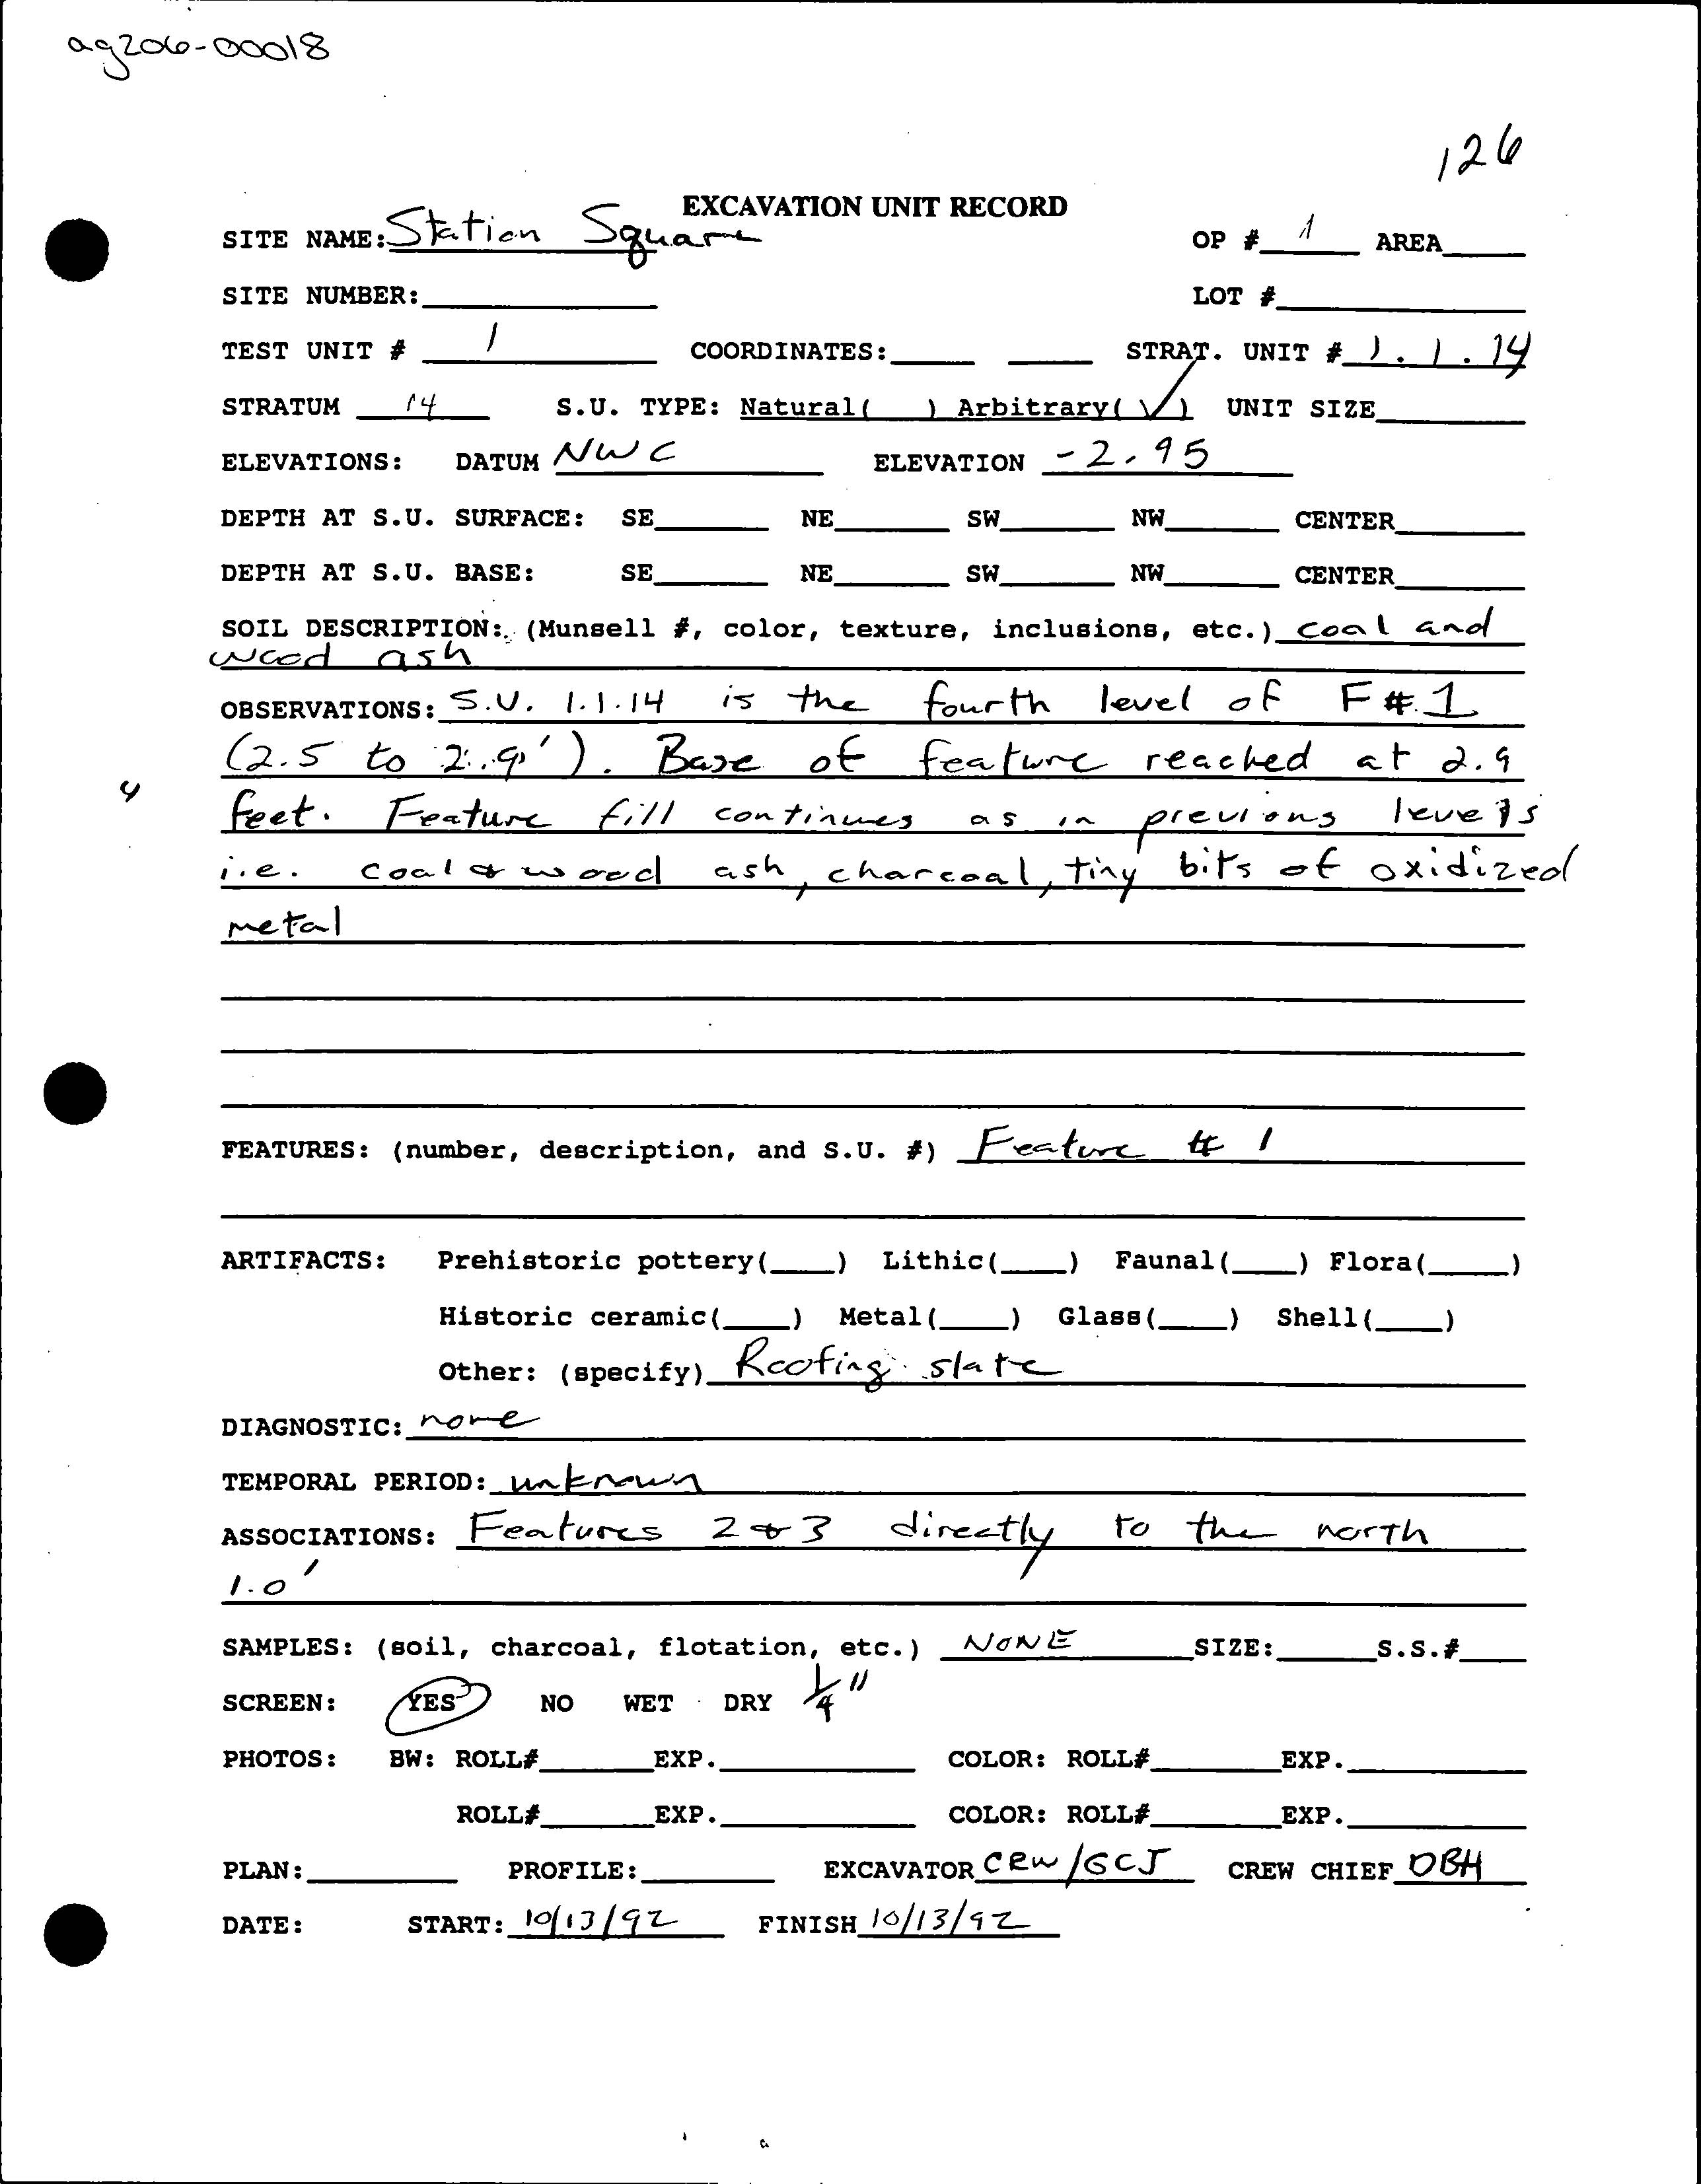 ag206-00018
126
EXCAVATION UNIT RECORD
SITE NAME: Station Square OP # 1 AREA
SITE NUMBER: LOT #
TEST UNIT # 1 COORDINATES: STRAT. UNIT # 1.1.14
STRATUM 14 S.U. TYPE: Natural( ) Arbitrary(√) UNIT SIZE
ELEVATIONS: DATUM NWC ELEVATION -2.95
DEPTH AT S.U. SURFACE: SE NE SW NW CENTER
DEPTH AT S.U. BASE: SE NE SW NW CENTER
SOIL DESCRIPTION: (Munsell #, color, texture, inclusions, etc.) coal and
wood ash
OBSERVATIONS: S.U. 1.1.14 is the fourth level of F#1
(2.5 to 2.9'). Base of feature reached at 2.9
feet. Feature fill continues as in previous levels
i.e. coal & wood ash, charcoal, tiny bits of oxidized
metal
FEATURES: (number, description, and S.U. #) Feature # 1
ARTIFACTS: Prehistoric pottery(____) Lithic(____) Faunal(____) Flora(____)
Historic ceramic(____) Metal(____) Glass(____) Shell(____)
Other: (specify) Roofing slate
DIAGNOSTIC: none
TEMPORAL PERIOD: unknown
ASSOCIATIONS: Features 2 & 3 directly to the north
1.0'
SAMPLES: (soil, charcoal, flotation, etc.) NONE SIZE: S.S.#
SCREEN: YES NO WET DRY 1/4"
PHOTOS: BW: ROLL# EXP. COLOR: ROLL# EXP.
ROLL# EXP. COLOR: ROLL# EXP.
PLAN: PROFILE: EXCAVATOR CRW/GCJ CREW CHIEF DBH
DATE: START: 10/13/92 FINISH 10/13/92